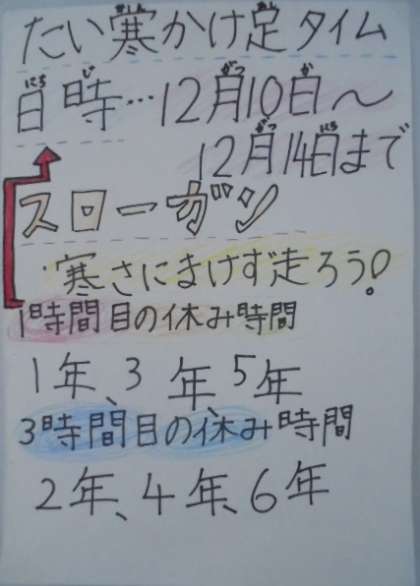 たい寒かけ足タイム
日時…12月10日～
12月14日まで
スローガン
・寒さにまけず走ろう!
1時間目の休み時間
1年、3年、5年
3時間目の休み時間
2年、4年、6年